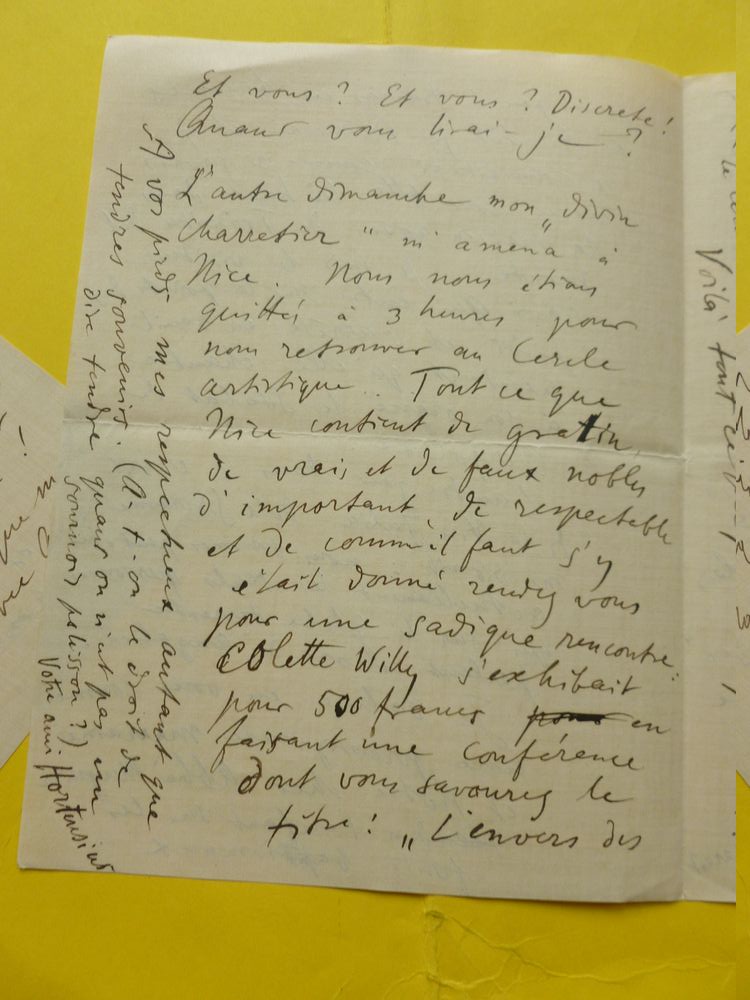 Et vous ? Et vous ? Discrète !
Quand vous lirai-je ?
L'autre dimanche mon „divin
Charretier" m'amena à
Nice. Nous nous étions
quittés à 3 heures pour
nous retrouver au Cercle
artistique. Tout ce que
Nice contient de gratin,
de vrais et de faux nobles
d'important, de respectable
et de comm-il faut s'y
était donné rendez vous
pour une sadique rencontre.
Colette Willy s'exhibait
pour 500 francs en
faisant une conférence
dont vous savourez le
titre ! „L'envers des
A vos pieds mes respectueux autant que
tendres souvenirs. (A-t-on le droit de
dire tendre quand on n'est pas un
sournois pelisson ?)
Votre ami Hortensius
Voilà tout